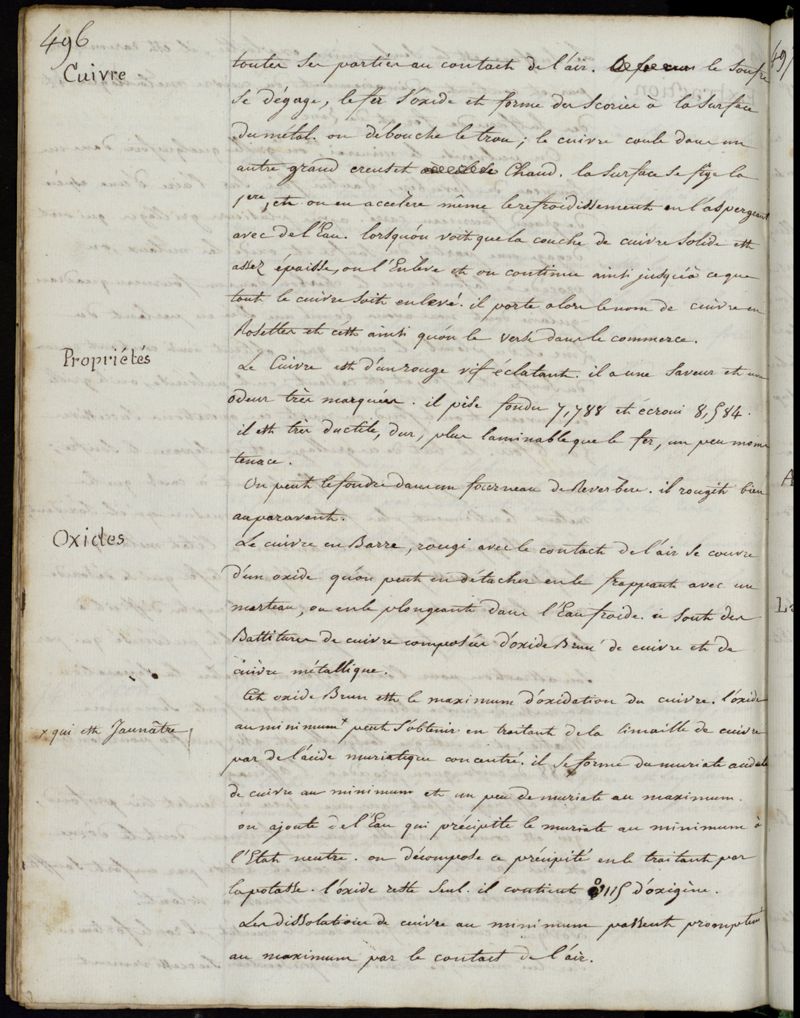 496
Cuivre
toutes ses parties au contact de l'air. le soufre
se dégage, le fer s'oxide et forme des scories à la surface
du métal. on debouche le trou; le cuivre coule dans un
autre grand creuset chaud. la surface se fige la
1ere, et on en accelère même le refroidissement en l'aspergeant
avec de l'Eau. lorsqu'on voit que la couche de cuivre solide est
assez épaisse, on l'Enlève et on continue ainsi jusqu'à ce que
tout le cuivre soit enlevé. il porte alors le nom de cuivre en
Rosettes et c'est ainsi qu'on le verse dans le commerce.
Propriétés
Le Cuivre est d'un rouge vif éclatant. il a une saveur et une
odeur très marquées. il pèse fondu 7,788 et écroui 8,584.
il est très ductile, dur, plus laminable que le fer, un peu moins
tenace.
On peut le fondre dans un fourneau de Reverbère. il rougit bien
auparavant.
Oxides
Le cuivre en Barre, rougi avec le contact de l'air se couvre
d'un oxide qu'on peut en détacher en le frappant avec un
marteau, ou en le plongeant dans l'Eau froide. ce sont des
Battitures de cuivre composées d'oxide Brun de cuivre et de
cuivre métallique.
Cet oxide Brun est le maximum d'oxidation du cuivre. l'oxide
au minimum x peut s'obtenir en traitant de la limaille de cuivre
x qui est Jaunâtre
par de l'acide muriatique concentré. il se forme du muriate acide
de cuivre au minimum et un peu de muriate au maximum.
on ajoute de l'Eau qui précipite le muriate au minimum à
l'Etat neutre. on décompose ce précipité en le traitant par
la potasse. l'oxide reste seul. il contient 0,115 d'oxigène.
Les dissolutions de cuivre au minimum passent promptemt
au maximum par le contact de l'air.